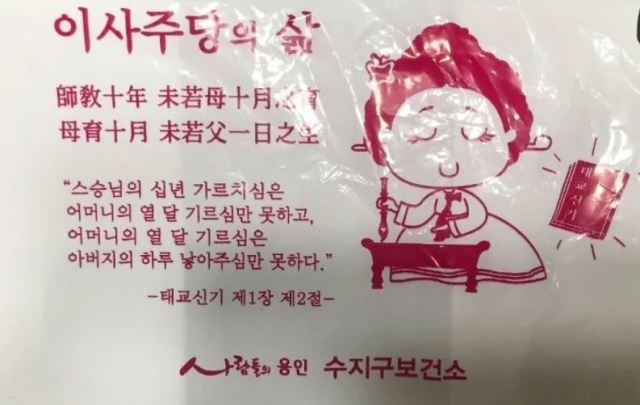 이사주당의 삶
師敎十年 未若母十月之育
母育十月 未若父一日之生
“스승님의 십년 가르치심은
어머니의 열 달 기르심만 못하고,
어머니의 열 달 기르심은
아버지의 하루 낳아주심만 못하다.”
-태교신기 제1장 제2절-
태교신기
사람들의 용인 수지구보건소